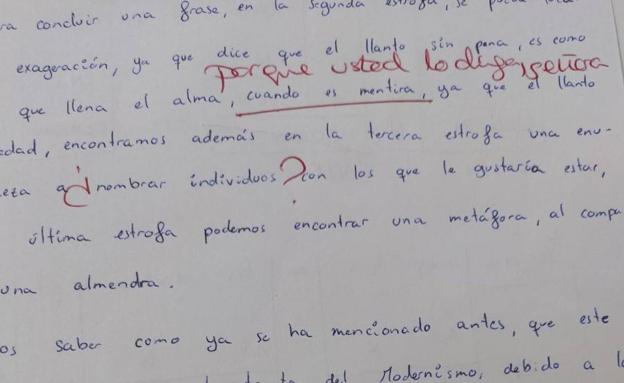 concluir una frase, en la segunda estrofa, se
exageración, ya que dice que el llanto sin pena, es como
porque usted lo diga, señora
que llena el alma, cuando es mentira, ya que el llanto
edad, encontramos además en la tercera estrofa una enu-
eza a ¿nombrar individuos? con los que le gustaría estar,
última estrofa podemos encontrar una metáfora, al compa
una almendra.
os saber como ya se ha mencionado antes, que este
del Modernismo, debido a l